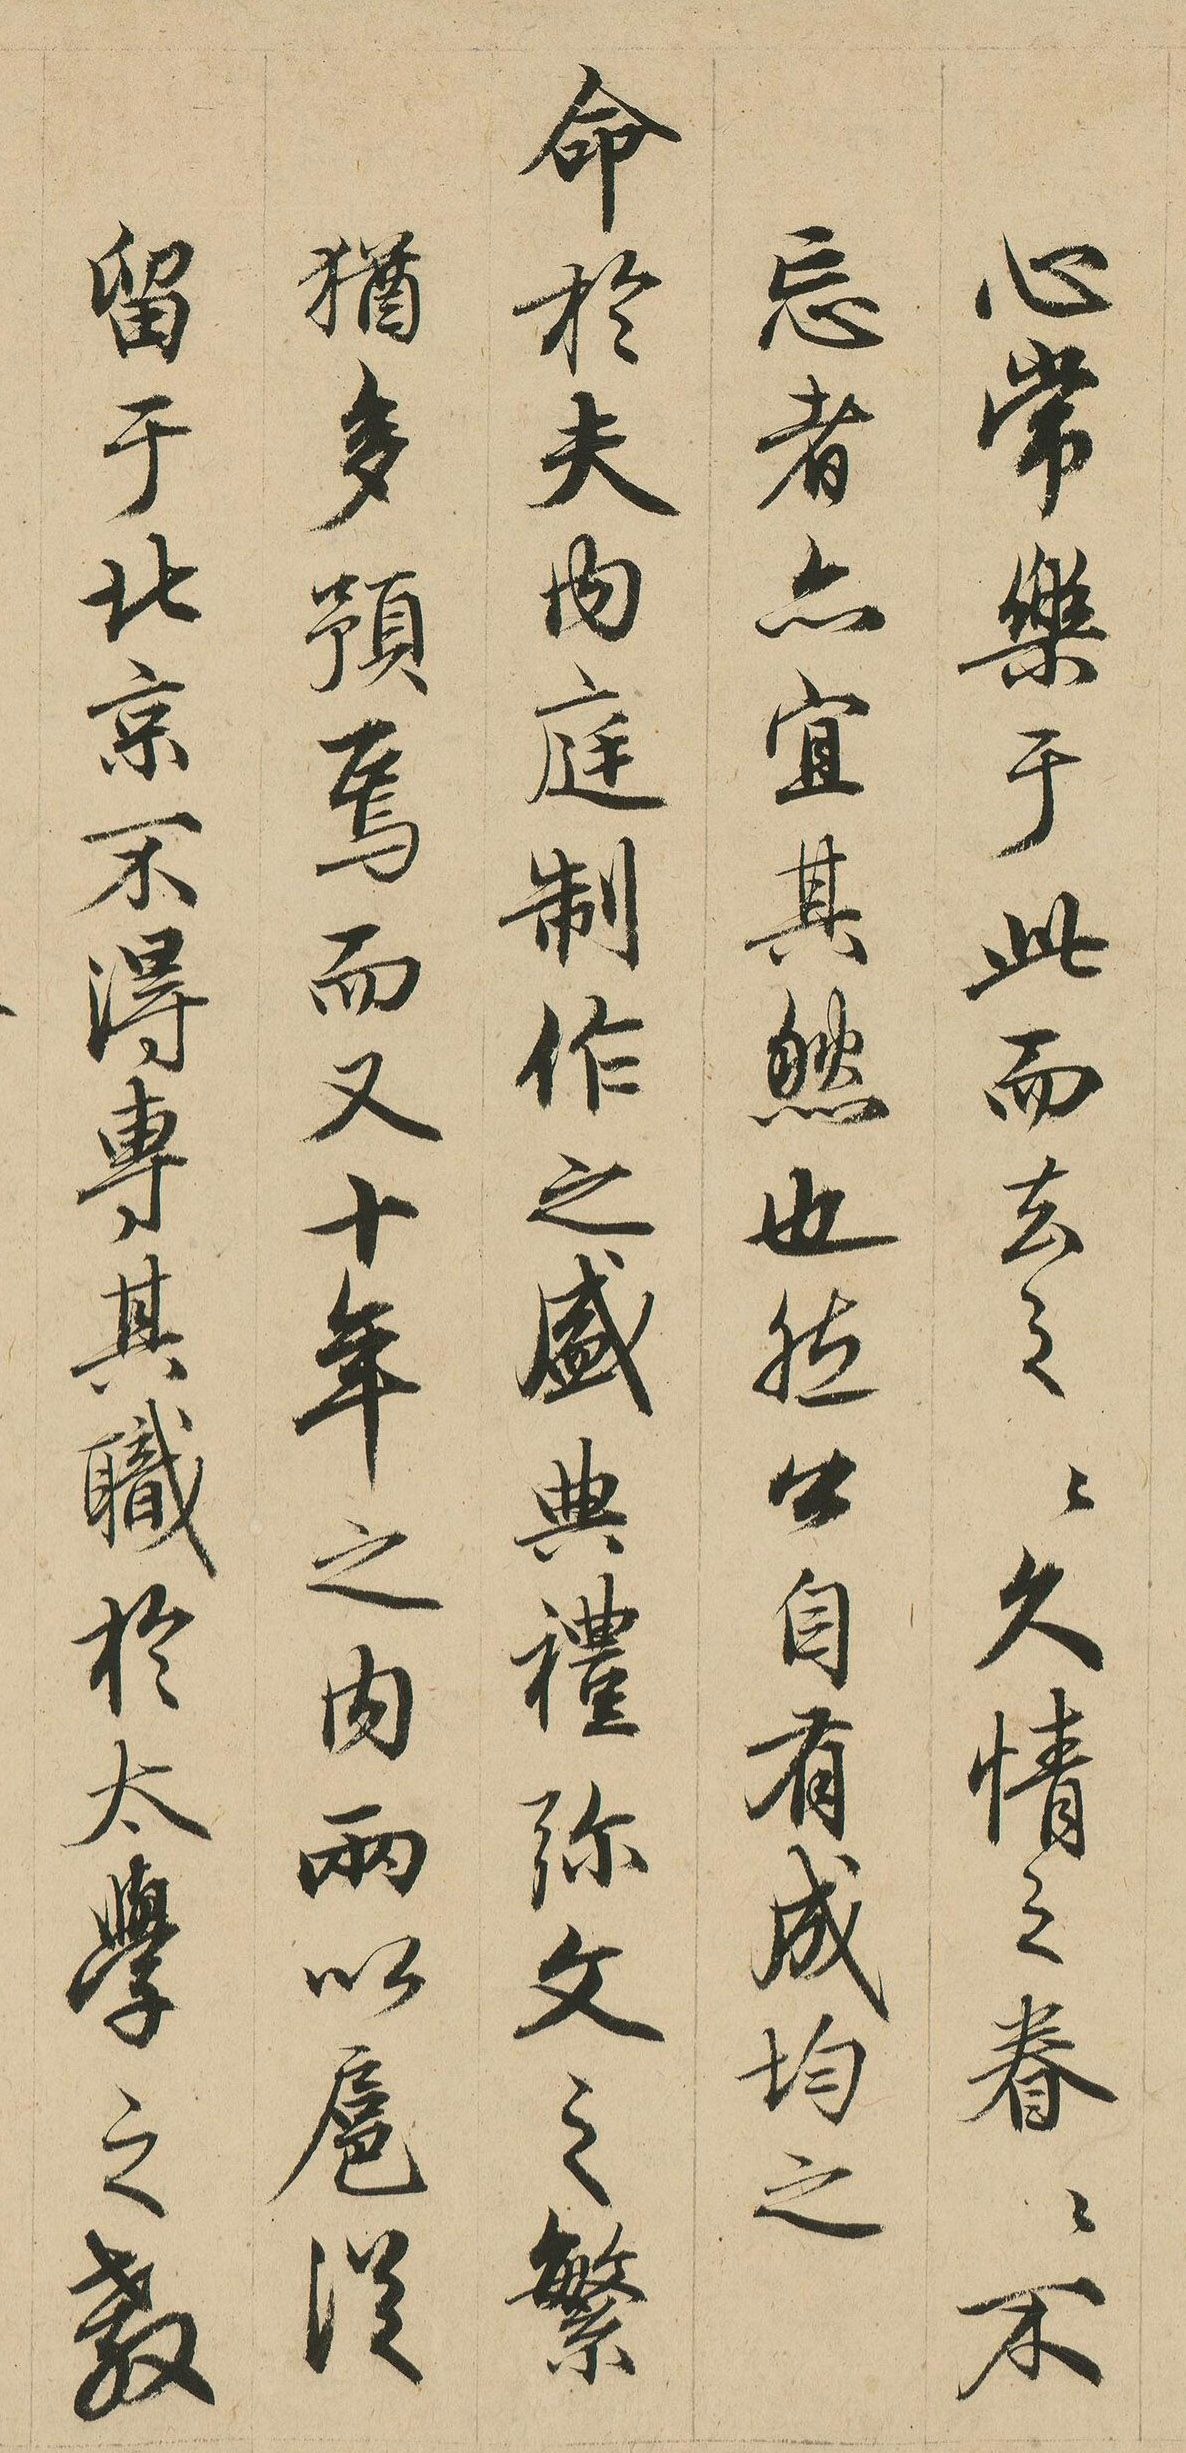 心常樂于此而去之〻久情之眷〻不
忘者亦宜其然也然公自有成均之
命於夫内庭制作之盛典禮弥文之繁
猶多預焉而又十年之内兩以扈從
留于北京不得專其職於太學之教